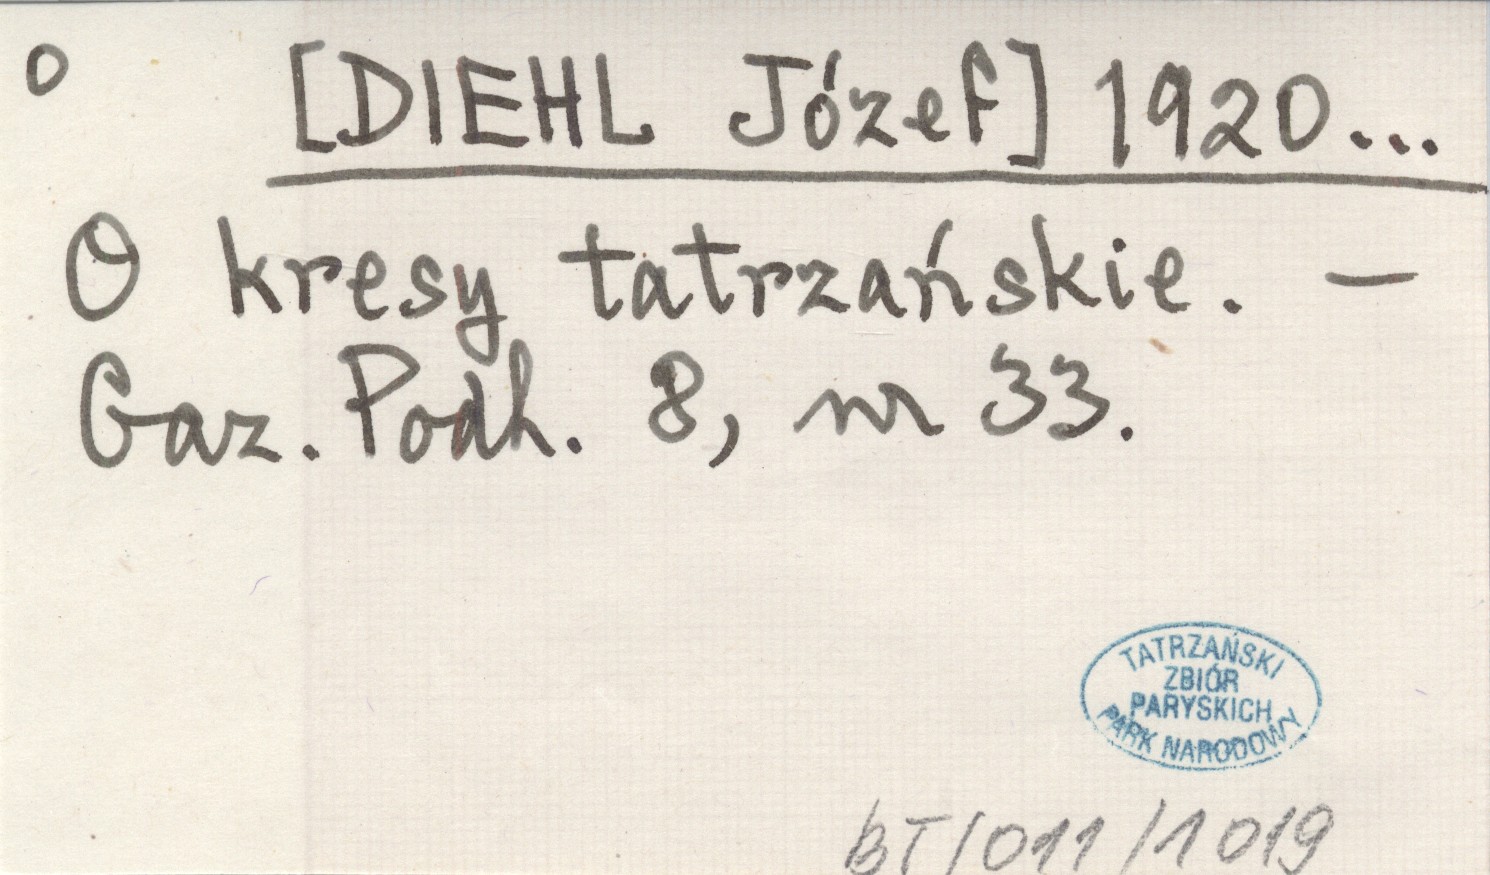 o [DIEHL Józef] 1920...
O kresy tatrzańskie. —
Gaz. Podh. 8, nr 33.
TATRZAŃSKI
ZBIÓR
PARYSKICH
PARK NARODOWY
BT/011/1019